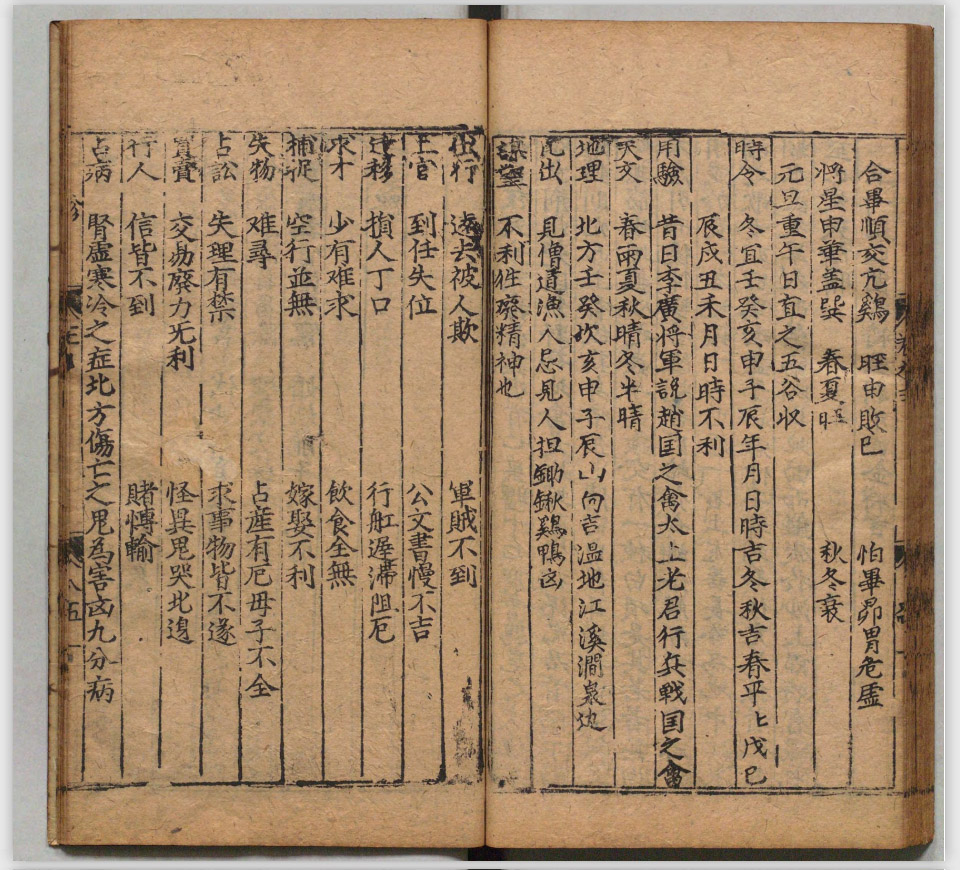 合畢順交亢鷄 旺申敗巳 怕畢昴胃危虛
将星申華盖巽 春夏旺 秋冬衰
元旦重午日直之五谷收
時令 冬宜壬癸亥申子辰年月日時吉冬秋吉春平上戊巳
辰戌丑禾月日時不利
用驗 昔日李廣将軍説趙国之禽太上老君行兵戦国之禽
天文 春雨夏秋晴冬半晴
地理 北方壬癸坎亥申子辰山向吉温地江溪澗泉边
見僧道漁人忌見人担鋤鍬鷄鴨凶
謀望 不利往廢精神也
出行 遠去被人欺 軍賊不到
上官 到任失位 公文書慢不吉
迁移 損人丁口 行舡遅滞阻厄
求才 少有难求 飲食全無
捕捉 空行並無 嫁娶不利
失物 难尋 占産有厄母子不全
占訟 失理有禁 求事物皆不遂
買賣 交易廢力旡利 怪異鬼哭北邊
行人 信皆不到 賭愽輸
占病 腎虛寒冷之症北方傷亡之鬼為害凶九分病
八五